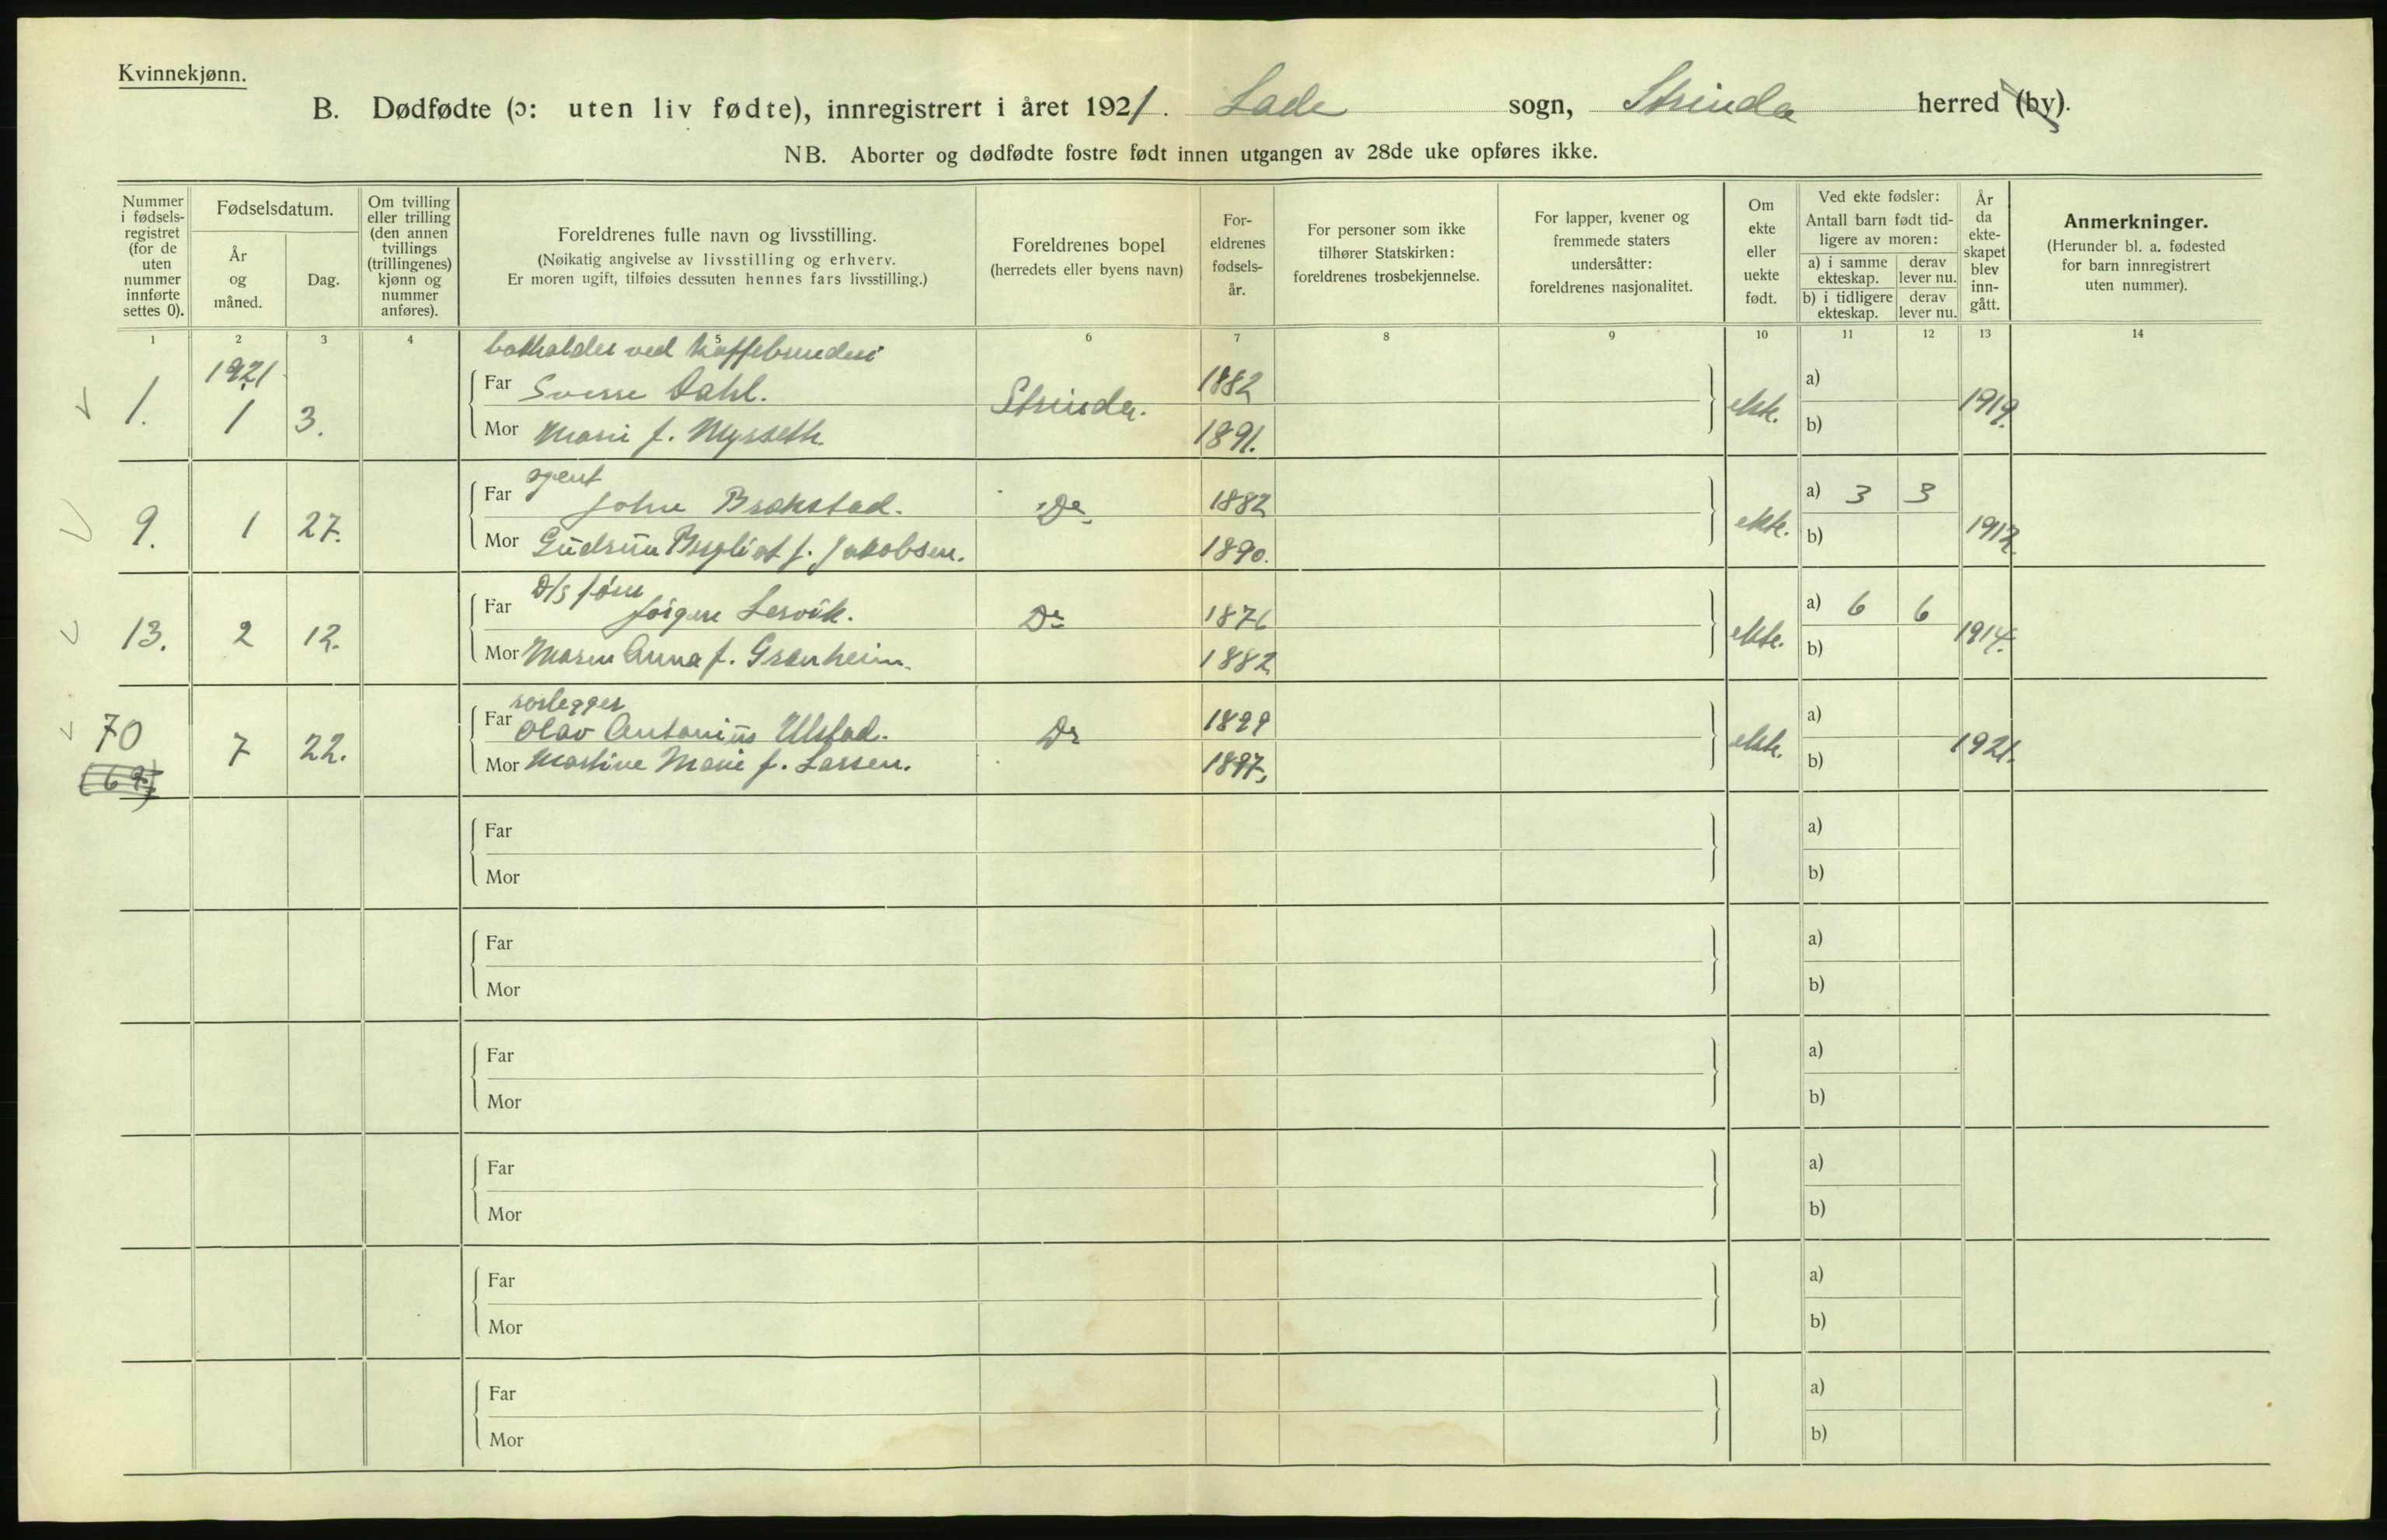 Kvinnekjønn.
B. Dødfødte (ɔ: uten liv fødte), innregistrert i året 1921. Lade sogn, Strinda herred (by).
NB. Aborter og dødfødte fostre født innen utgangen av 28de uke opføres ikke.
Nummer i fødsels-registret (for de uten nummer innførte settes 0).
Fødselsdatum.
År og måned.
Dag.
Om tvilling eller trilling (den annen tvillings (trillingenes) kjønn og nummer anføres).
Foreldrenes fulle navn og livsstilling.
(Nøikatig angivelse av livsstilling og erhverv.
Er moren ugift, tilføies dessuten hennes fars livsstilling.)
Foreldrenes bopel
(herredets eller byens navn)
For-eldrenes fødsels-år.
For personer som ikke tilhører Statskirken: foreldrenes trosbekjennelse.
For lapper, kvener og fremmede staters undersåtter: foreldrenes nasjonalitet.
Om ekte eller uekte født.
Ved ekte fødsler:
Antall barn født tid-ligere av moren:
a) i samme ekteskap.
derav lever nu.
b) i tidligere ekteskap.
derav lever nu.
År da ekte-skapet blev inn-gått.
Anmerkninger.
(Herunder bl. a. fødested for barn innregistrert uten nummer).
1 2 3 4 5 6 7 8 9 10 11 12 13 14
1921
1. 1 3. Far Sverre Dahl. Strinda. 1882 ekte. a) 1919.
Mor Marie f. Mysseth. 1891. b)
agent
9. 1 27. Far John Brakstad. Do 1882 ekte. a) 3 3 1912.
Mor Gudrun Bergliot f. Jakobsen. 1890. b)
13. 2 12. Far Jörgen Lervik. Do 1876 ekte. a) 6 6 1914.
Mor Maren Anna f. Granheim. 1882 b)
rørlegger
70 7 22. Far Olav Antonius Ulstad. Do 1899 ekte. a) 1921.
Mor Martine Marie f. Larsen. 1897. b)
Far a)
Mor b)
Far a)
Mor b)
Far a)
Mor b)
Far a)
Mor b)
Far a)
Mor b)
Far a)
Mor b)